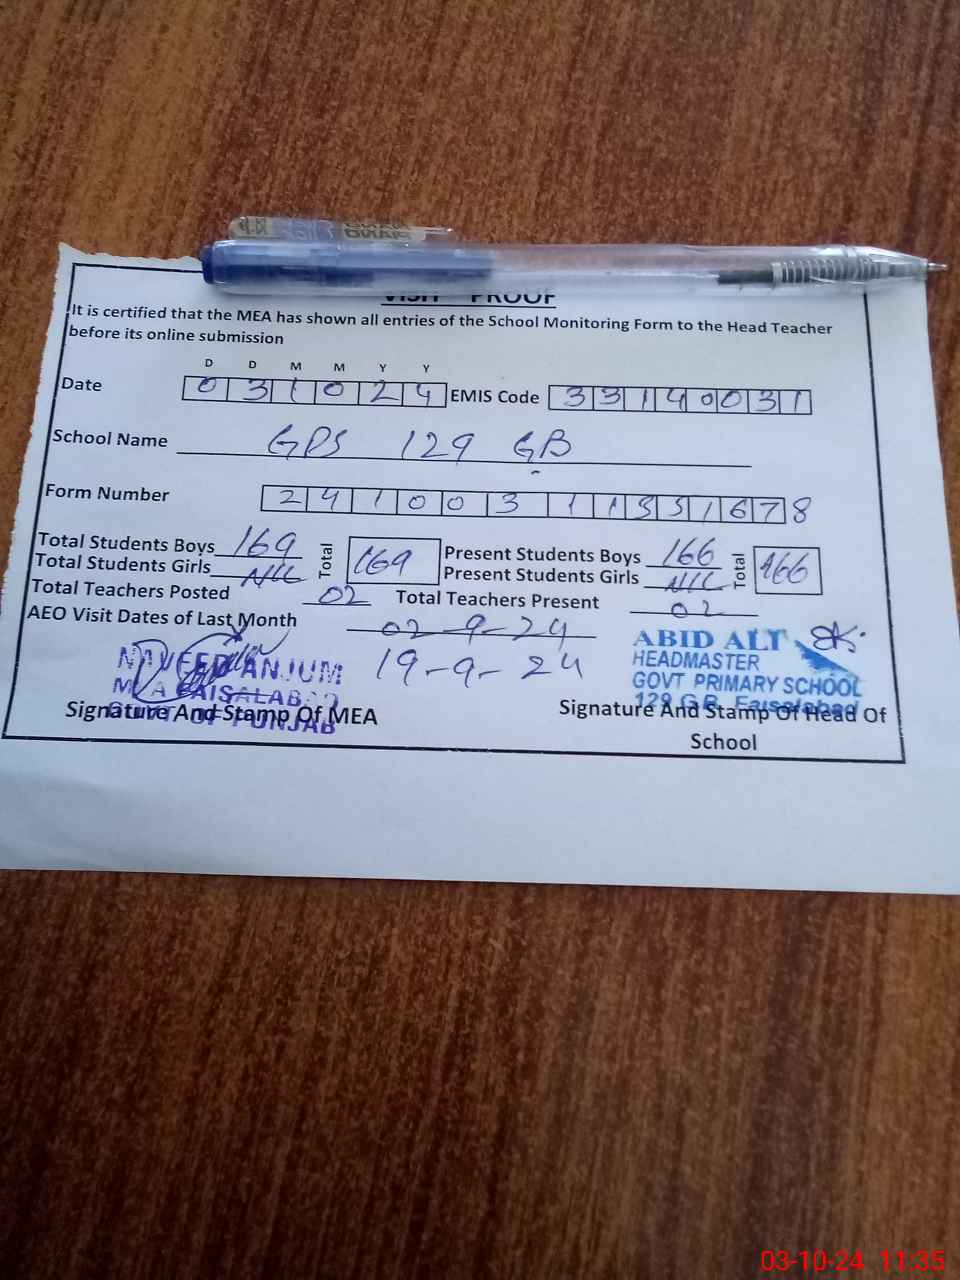 VISIT PROOF
It is certified that the MEA has shown all entries of the School Monitoring Form to the Head Teacher
before its online submission
D D M M Y Y
Date 0 3 1 0 2 4 EMIS Code 3 3 1 4 0 0 3 1
School Name GPS 129 GB
Form Number 2 4 1 0 0 3 1 1 3 5 1 6 7 8
Total Students Boys 169 Total 169 Present Students Boys 166 Total 166
Total Students Girls NIL Present Students Girls NIL
Total Teachers Posted 02 Total Teachers Present 02
AEO Visit Dates of Last Month 02-9-24
19-9-24
NAVEED ANJUM
MEA FAISALABAD
GOVT OF PUNJAB
Signature And Stamp Of MEA
ABID ALI
HEADMASTER
GOVT PRIMARY SCHOOL
129 G.B. Faisalabad
Signature And Stamp Of Head Of
School
03-10-24 11:35